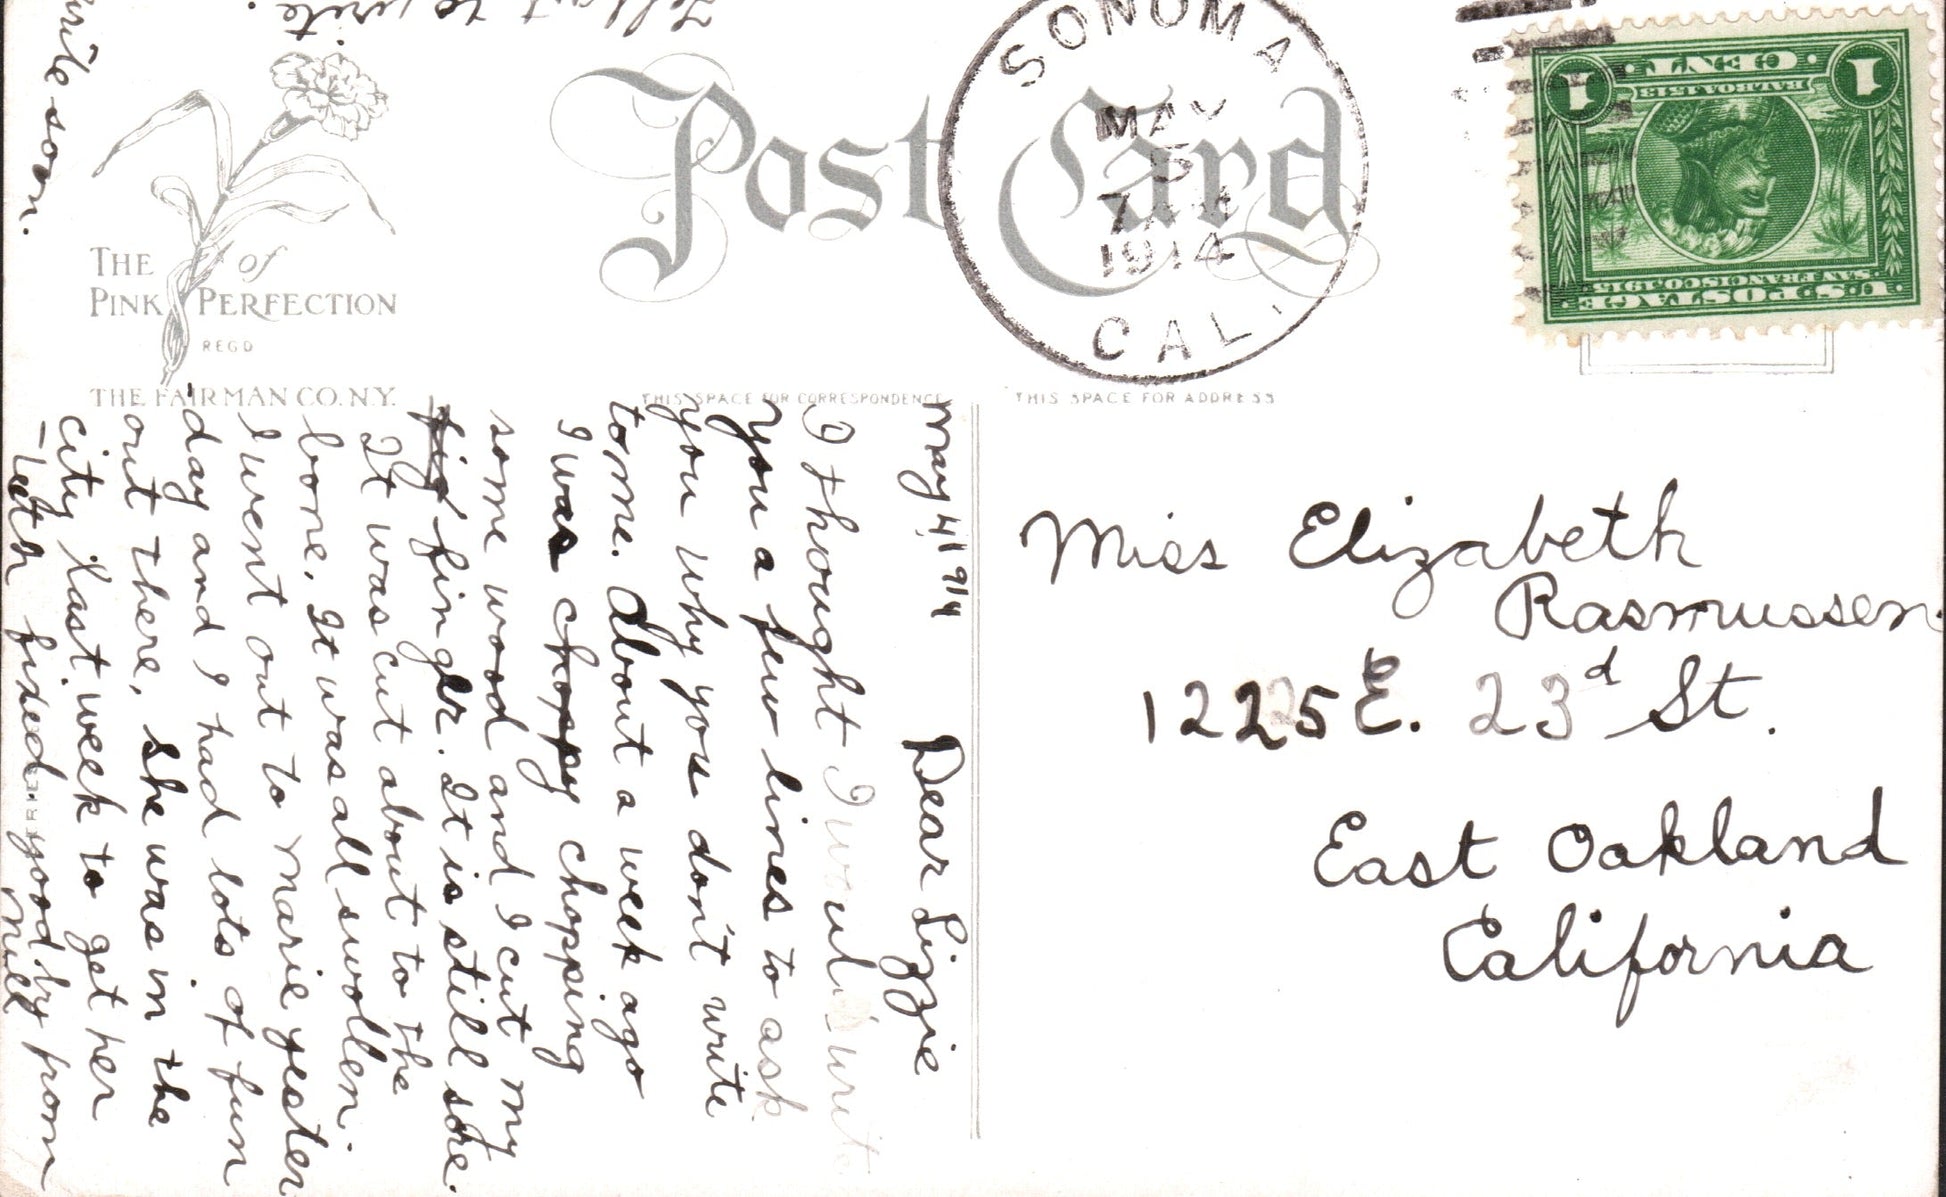 THE of
PINK PERFECTION
REGD
THE FAIRMAN CO. N.Y.
Post Card
SONOMA
MAY
5
7
1914
CAL.
U.S. POSTAGE
SAN FRANCISCO, 1915
BALBOA 1513
1 CENT 1
THIS SPACE FOR CORRESPONDENCE
THIS SPACE FOR ADDRESS
May 4, 1914
Dear Lizzie
I thought I would write
you a few lines to ask
you why you don't write
to me. About a week ago
I was choppy chopping
some wood and I cut my
fig finger. It is still sore.
It was cut about to the
bone. It was all swollen.
I went out to Marie yester
-day and I had lots of fun
out there, she was in the
city last week to get her
fixed. good by from
Nell
write soon.
to write.
Miss Elizabeth
Rasmussen
1225 E. 23d St.
East Oakland
California